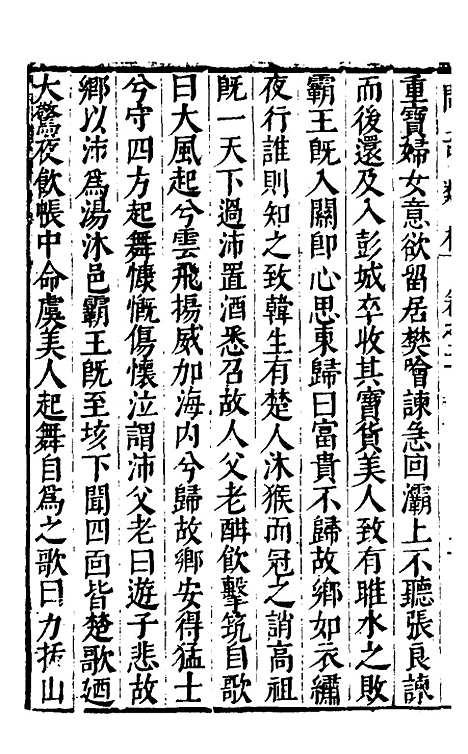 重寶婦女意欲留居樊噲諫急回灞上不聽張良諫
而後還及入彭城卒收其寶貨美人致有睢水之敗
霸王既入關卽心思東歸曰富貴不歸故鄉如衣繡
夜行誰則知之致韓生有楚人沐猴而冠之誚高祖
既一天下過沛置酒悉召故人父老酣飲擊筑自歌
曰大風起兮雲飛揚威加海內兮歸故鄉安得猛士
兮守四方起舞慷慨傷懷泣謂沛父老曰遊子悲故
鄉以沛爲湯沐邑霸王既至垓下聞四面皆楚歌廼
大驚夜飲帳中命虞美人起舞自爲之歌曰力拔山